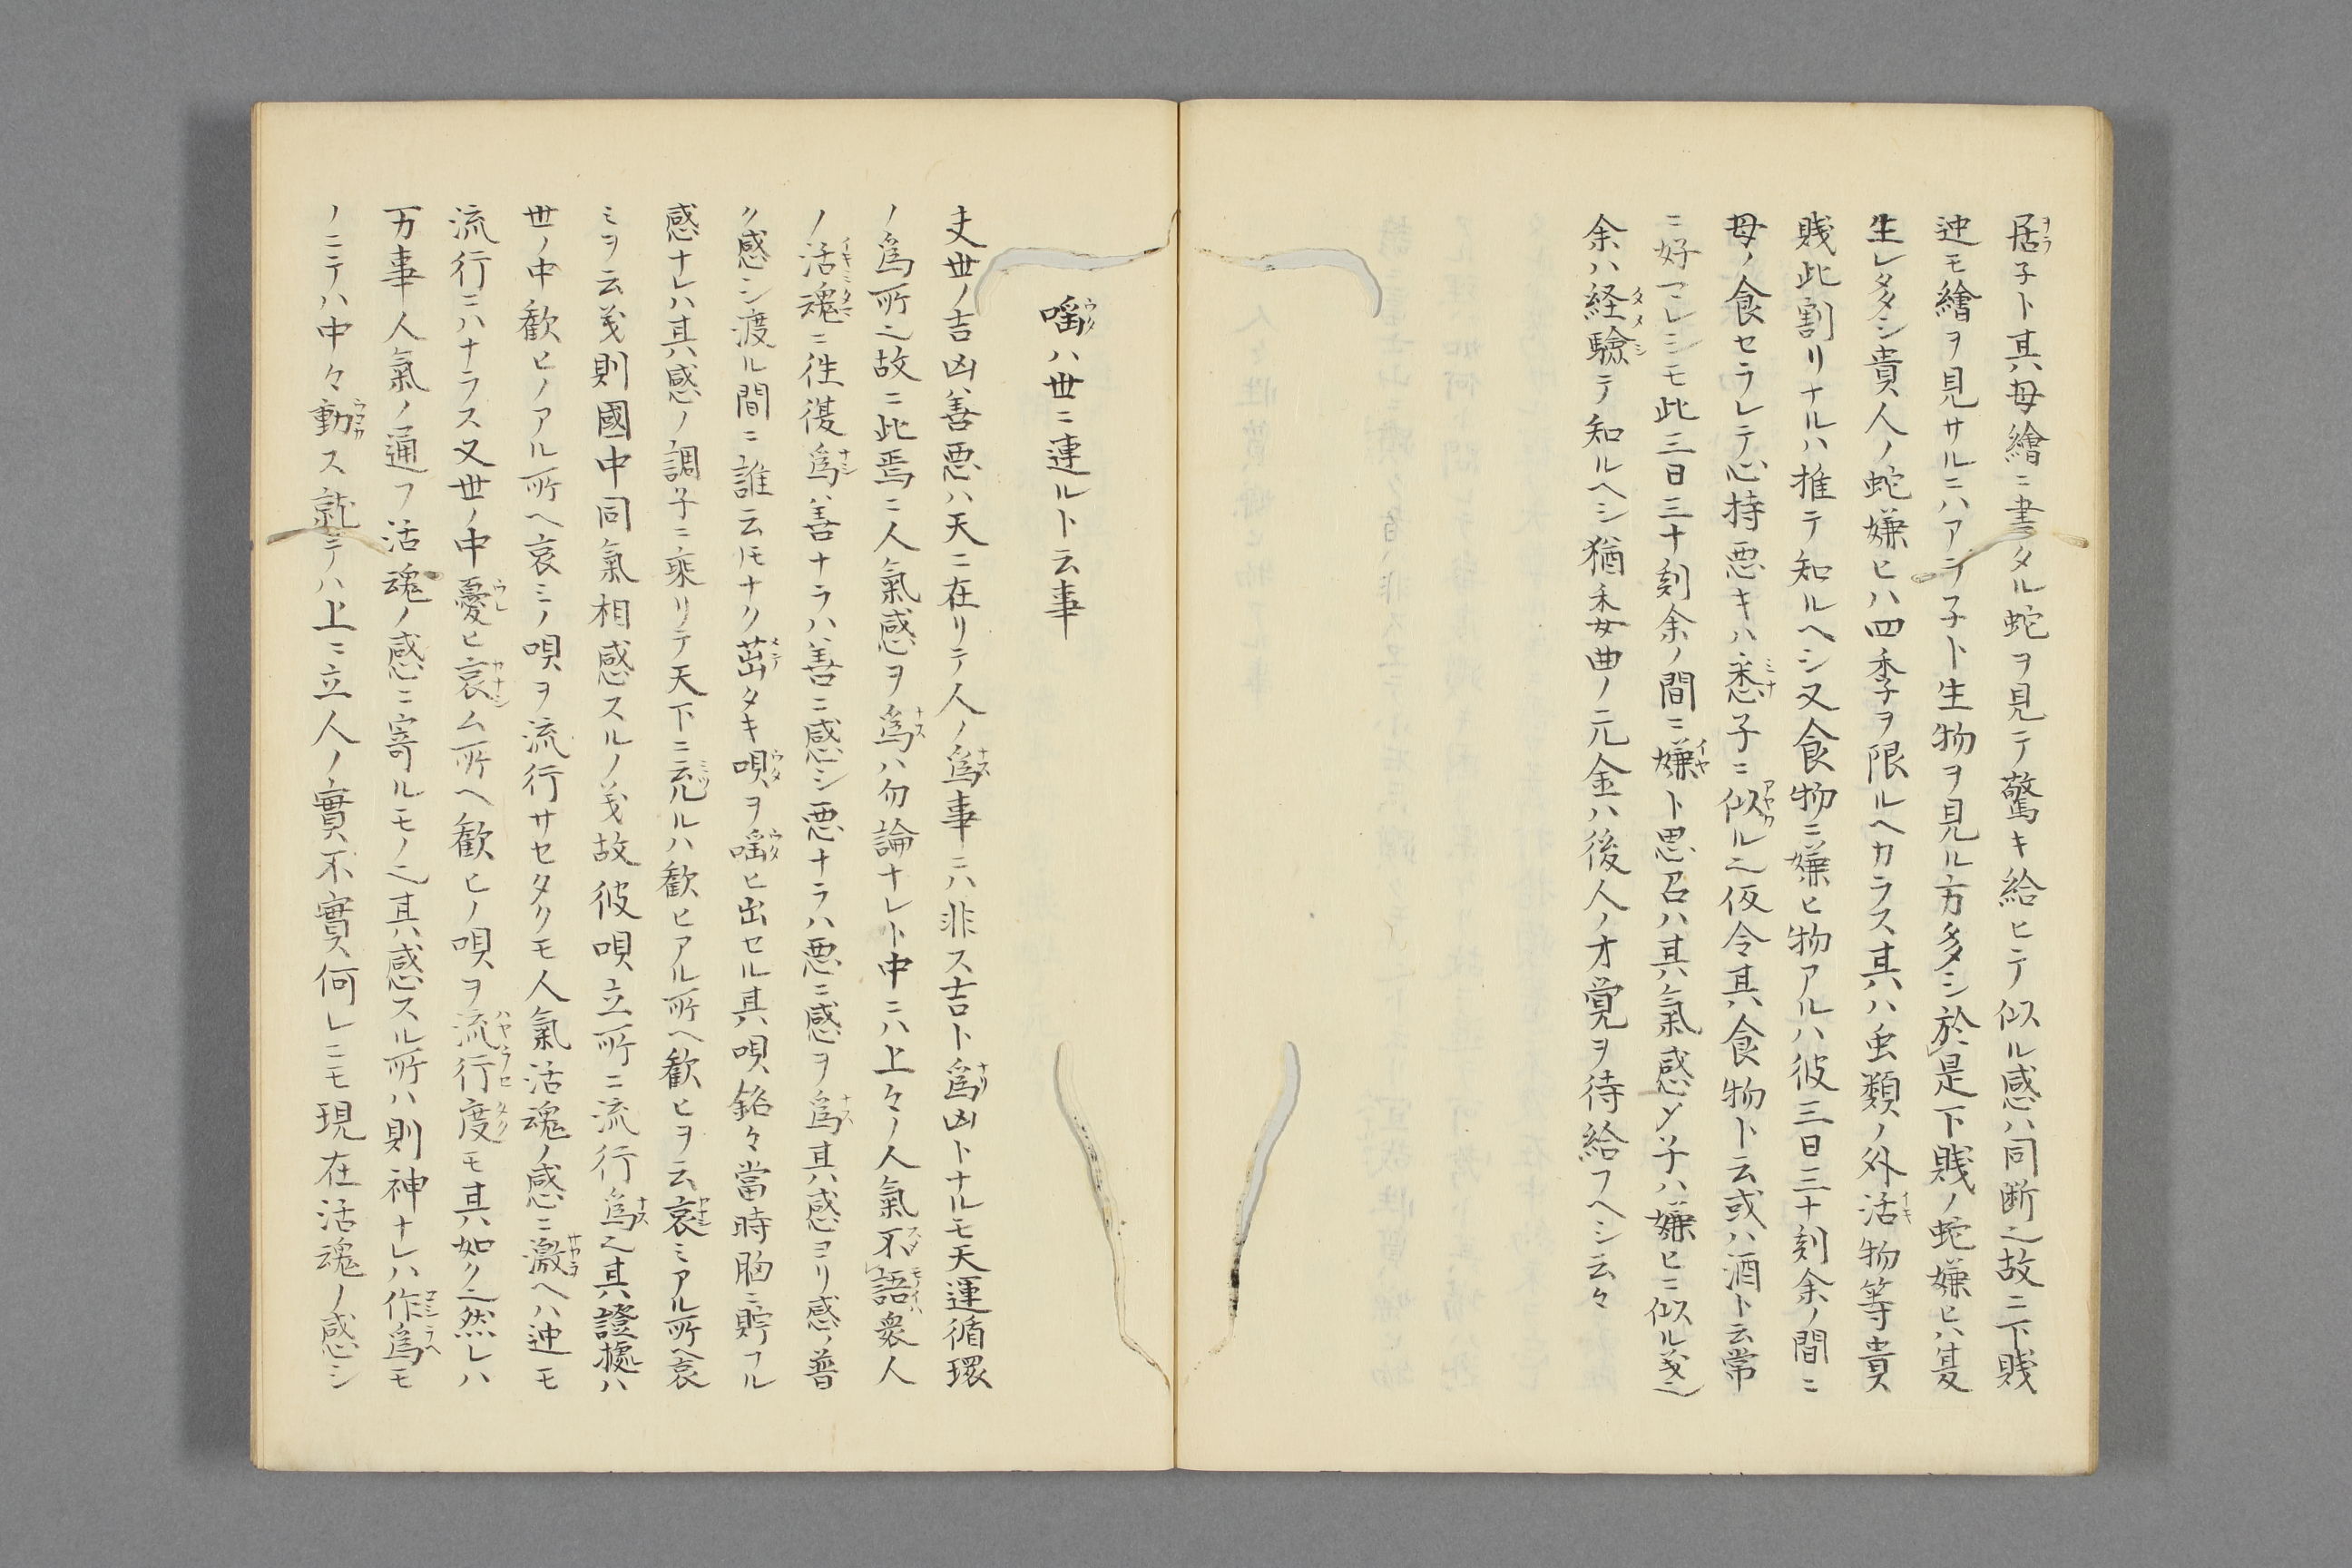 居子ト其母繪ニ書タル蛇ヲ見テ驚キ給ヒテ似ル感ハ同断之故ニ下賎
迚モ繪ヲ見サルニハアラ子ト生物ヲ見ル方多シ於是下賎ノ蛇嫌ヒハ夏
生レ多シ貴人ノ蛇嫌ヒハ四季ヲ限ルヘカラス其ハ虫類ノ外活物等貴
賎此割リナルハ推テ知ルヘシ又食物ニ嫌ヒ物アルハ彼三日三十刻余ノ間ニ
母ノ食セラレテ心持悪キハ悉子ニ似ル之仮令其食物ト云或ハ酒ト云常
ニ好マレシモ此三日三十刻余ノ間ニ嫌ト思召ハ其氣感タ子ハ嫌ヒニ似ル義之
余ハ経驗テ知ルヘシ猶委曲ノ元金ハ後人ノ才覚ヲ待給フヘシ云々
噬ハ世ニ連ルト云事
夫世ノ吉凶善悪ハ天ニ在リテ人ノ爲事ニハ非ス吉ト爲凶トナルモ天運循環
ノ爲所之故ニ此焉ニ人氣感ヲ爲ハ勿論ナレト中ニハ上々ノ人氣不語衆人
ノ活魂ニ徃復爲ハ善ナラハ善ニ感シ悪ナラハ悪ニ感ヲ爲其感ヨリ感ノ普
ク感シ渡ル間ニ誰云モナク茁タキ唄ヲ噬ヒ出セル其唄銘々當時胸ニ貯フル
感ナレハ其感ノ調子ニ乘リテ天下ニ充ルハ歓ヒアル所ヘ歓ヒヲ云哀ミアル所ヘ哀
ミヲ云義則國中同氣相感スルノ義故彼唄立所ニ流行爲之其證據ハ
世ノ中歓ヒノアル所ヘ哀ミノ唄ヲ流行サセタクモ人氣活魂ノ感ニ激ヘハ迚モ
流行ニハナラス又世ノ中憂ヒ哀ム所ヘ歓ヒノ唄ヲ流行度モ其如ク之然レハ
万事人氣ノ通フ活魂ノ感ニ寄ルモノ之其感スル所ハ則神ナレハ作爲モ
ノニテハ中々動ス就テハ上ニ立人ノ實不實何レニモ現在活魂ノ感シ